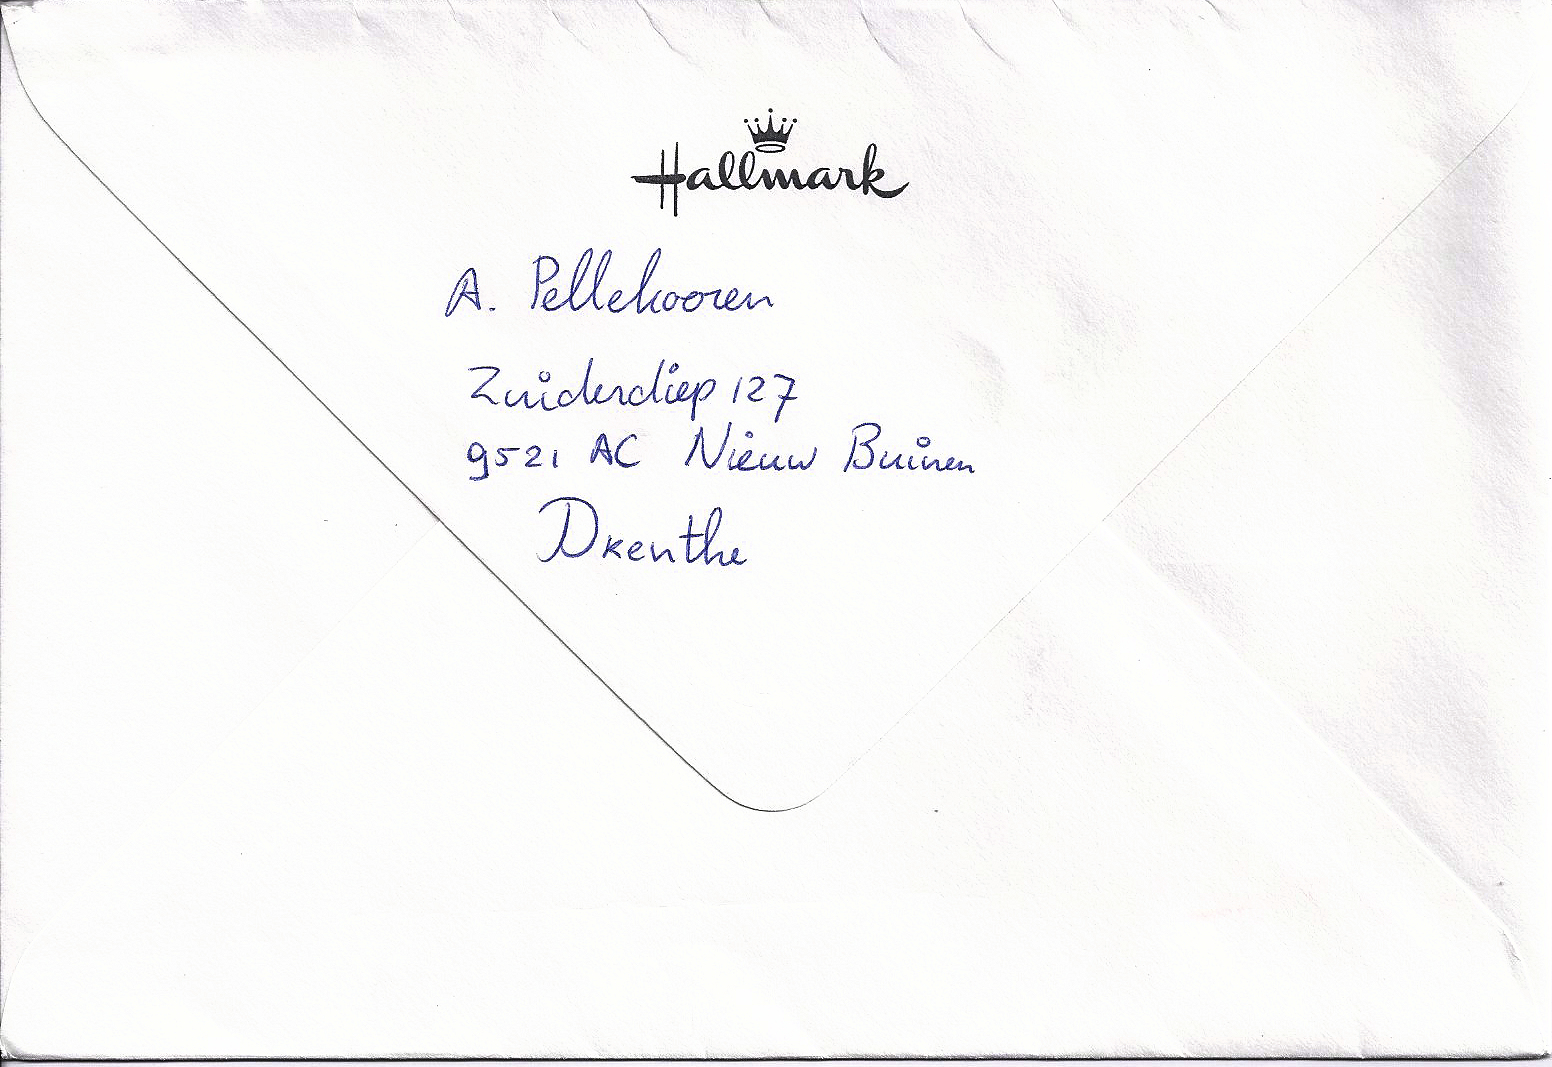 Hallmark
A. Pellekooren
Zuiderdiep 127
9521 AC Nieuw Buinen
Drenthe